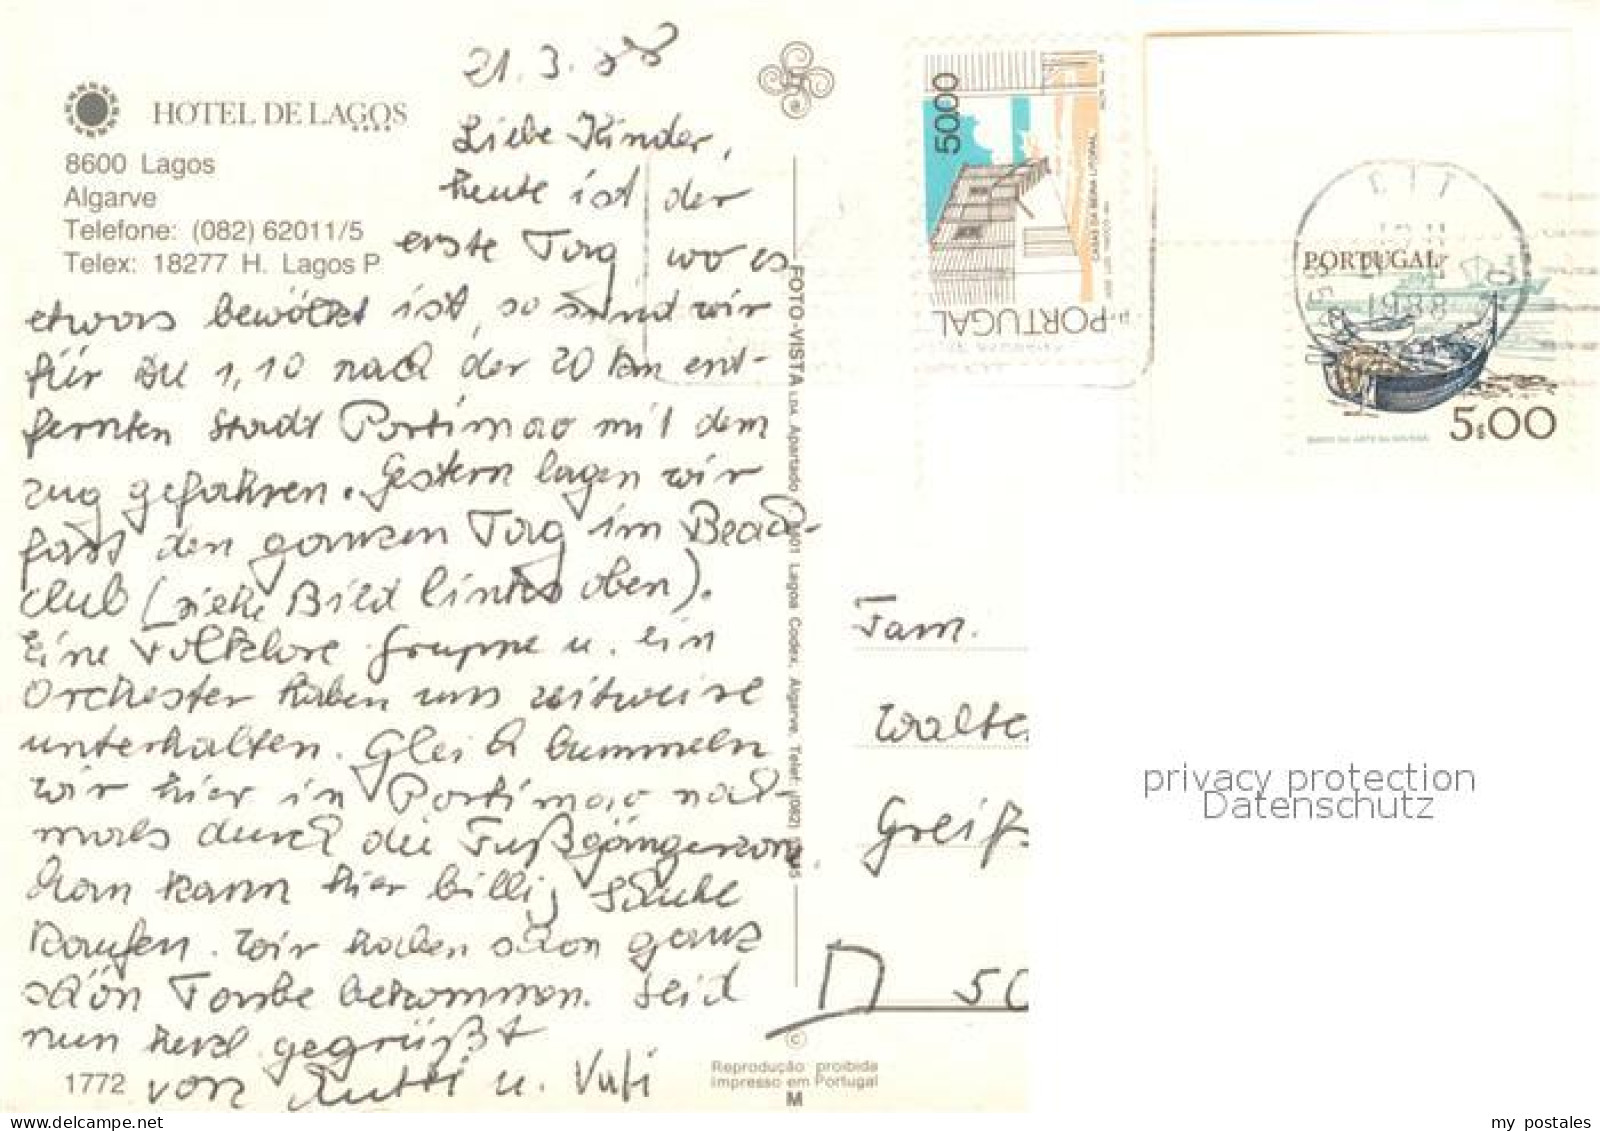 21.3.88
HOTEL DE LAGOS
8600 Lagos
Algarve
Telefone: (082) 62011/5
Telex: 18277 H. Lagos P
Liebe Kinder,
heute ist der
erste Tag wo es
etwas bewölkt ist, so sind wir
für DM 1,10 nach der 20 km ent-
fernten Stadt Portimao mit dem
zug gefahren. Gestern lagen wir
fast den ganzen Tag im Beach-
club (siehe Bild links oben).
Eine Folklore gruppe u. ein
Orchester haben uns zeitweise
unterhalten. Gleich bummeln
wir hier in Portimao noch-
mals durch die Fußgängerzone.
Man kann hier billig Schuhe
kaufen. Wir haben schon ganz
schön Farbe bekommen. Seid
nun herzl. gegrüßt
von Mutti u. Vati
1772
FOTO-VISTA LDA. Apartado Lagos Codex, Algarve. Telef. (082)
Reprodução proibida
Impresso em Portugal
M
©
50.00
CASAS DA BEIRA LITORAL
PORTUGAL
PORTUGAL
1988
5$00
Fam.
Walte
Greif
D 50
privacy protection
Datenschutz
my postales